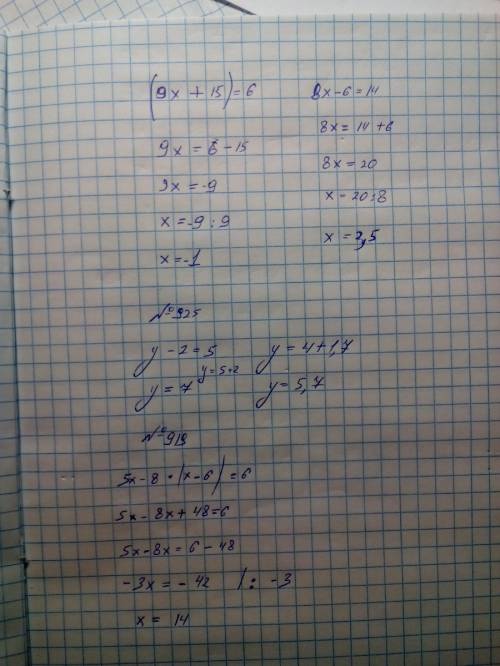 (9x + 15) = 6
9x = 6 - 15
9x = -9
x = -9 : 9
x = -1
8x - 6 = 14
8x = 14 + 6
8x = 20
x - 20 : 8
x = 2,5
№925
y - 2 = 5
y = 5 + 2
y = 7
y = 4 + 1,7
y = 5,7
№919
5x - 8 · (x - 6) = 6
5x - 8x + 48 = 6
5x - 8x = 6 - 48
-3x = - 42 | : -3
x = 14